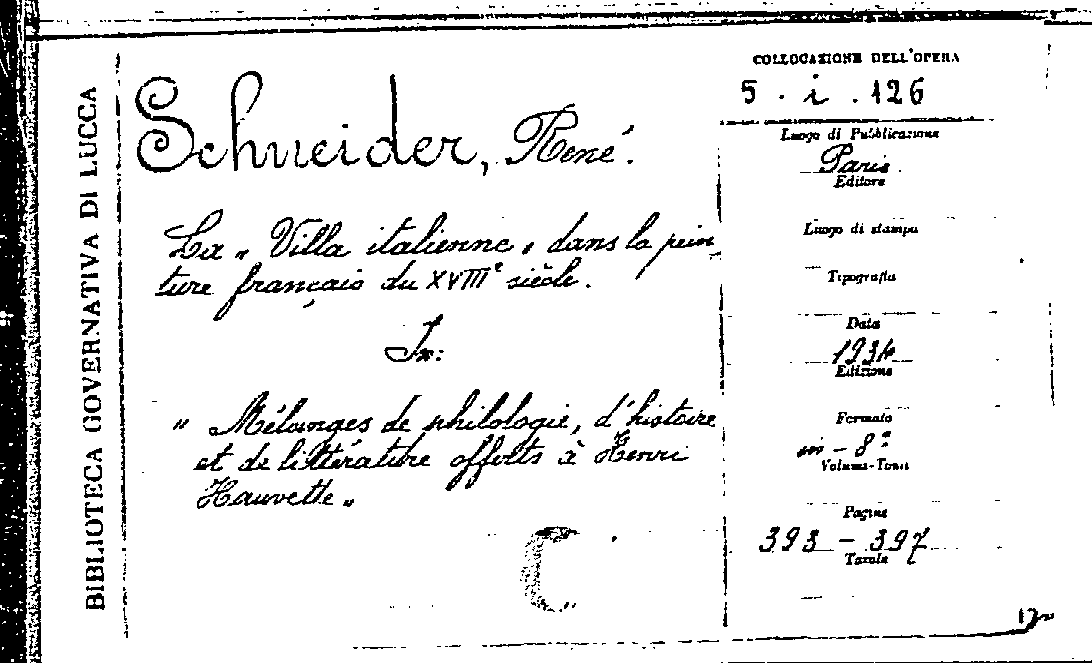 BIBLIOTECA GOVERNATIVA DI LUCCA
Schneider, René.
La „ Villa italienne „ dans la pein_
ture français du XVIIIe siècle.
In:
„ Mélanges de philologie, d'histoire
et de littérature offerts à Henri
Hauvette „
C
COLLOCAZIONE DELL'OPERA
5 . i . 126
Luogo di Pubblicazione
Paris
Editore
Luogo di stampa
Tipografia
Data
1934
Edizione
Formato
in - 8°
Volume-Tomi
Pagine
393 - 397
Tavole